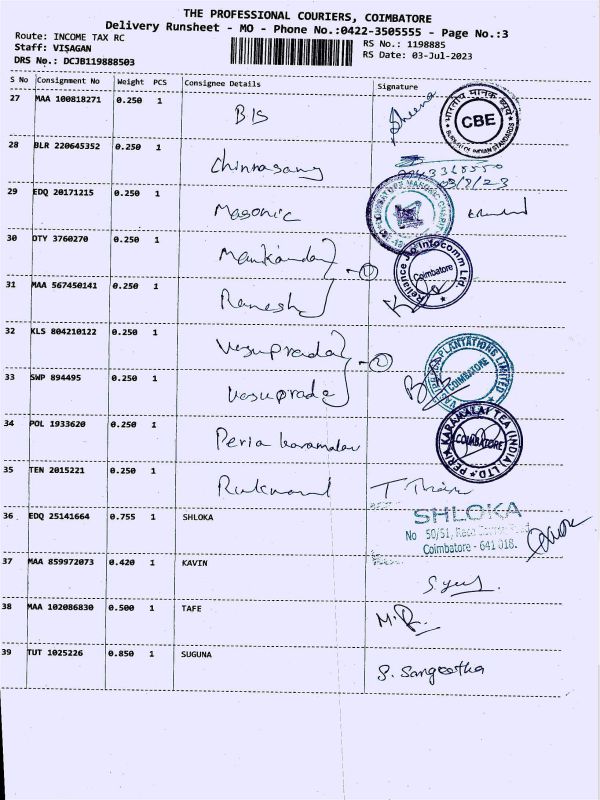 THE PROFESSIONAL COURIERS, COIMBATORE
Delivery Runsheet - MO - Phone No.:0422-3505555 - Page No.:3
Route: INCOME TAX RC
RS No.: 1198885
Staff: VISAGAN
RS Date: 03-Jul-2023
DRS No.: DCJB119888503
S No Consignment No Weight PCS Consignee Details Signature
27 MAA 100818271 0.250 1 BIS
भारतीय मानक ब्यूरो CBE BUREAU OF INDIAN STANDARDS
28 BLR 220645352 0.250 1 Chinnasamy
29 EDQ 20171215 0.250 1 Masonic
30 DTY 3760270 0.250 1 Manikandan
1
Reliance Jio Infocomm Ltd. Coimbatore
31 MAA 567450141 0.250 1 Ramesh
32 KLS 804210122 0.250 1 Vasuprada
2
PLANTATIONS LIMITED COIMBATORE
33 SWP 894495 0.250 1 Vasuprada
34 POL 1933620 0.250 1 Peria Karamalai
PERIA KARAMALAI TEA (INDIA) LTD. COIMBATORE
35 TEN 2015221 0.250 1
36 EDQ 25141664 0.755 1 SHLOKA
SHLOKA
No 50/51, Race Course Road
Coimbatore - 641 018.
37 MAA 859972073 0.420 1 KAVIN
38 MAA 102086830 0.500 1 TAFE
39 TUT 1025226 0.850 1 SUGUNA S. Sangeetha